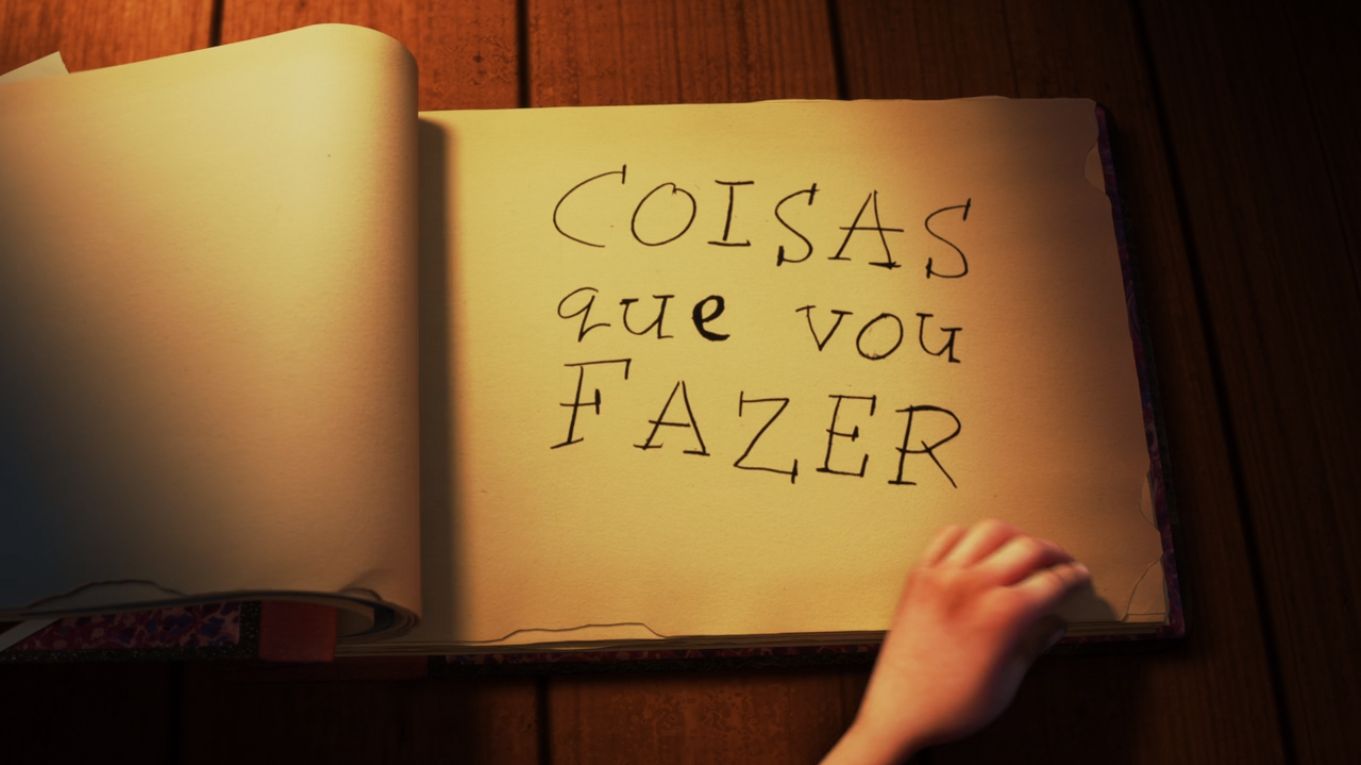 COISAS
que vou
FAZER